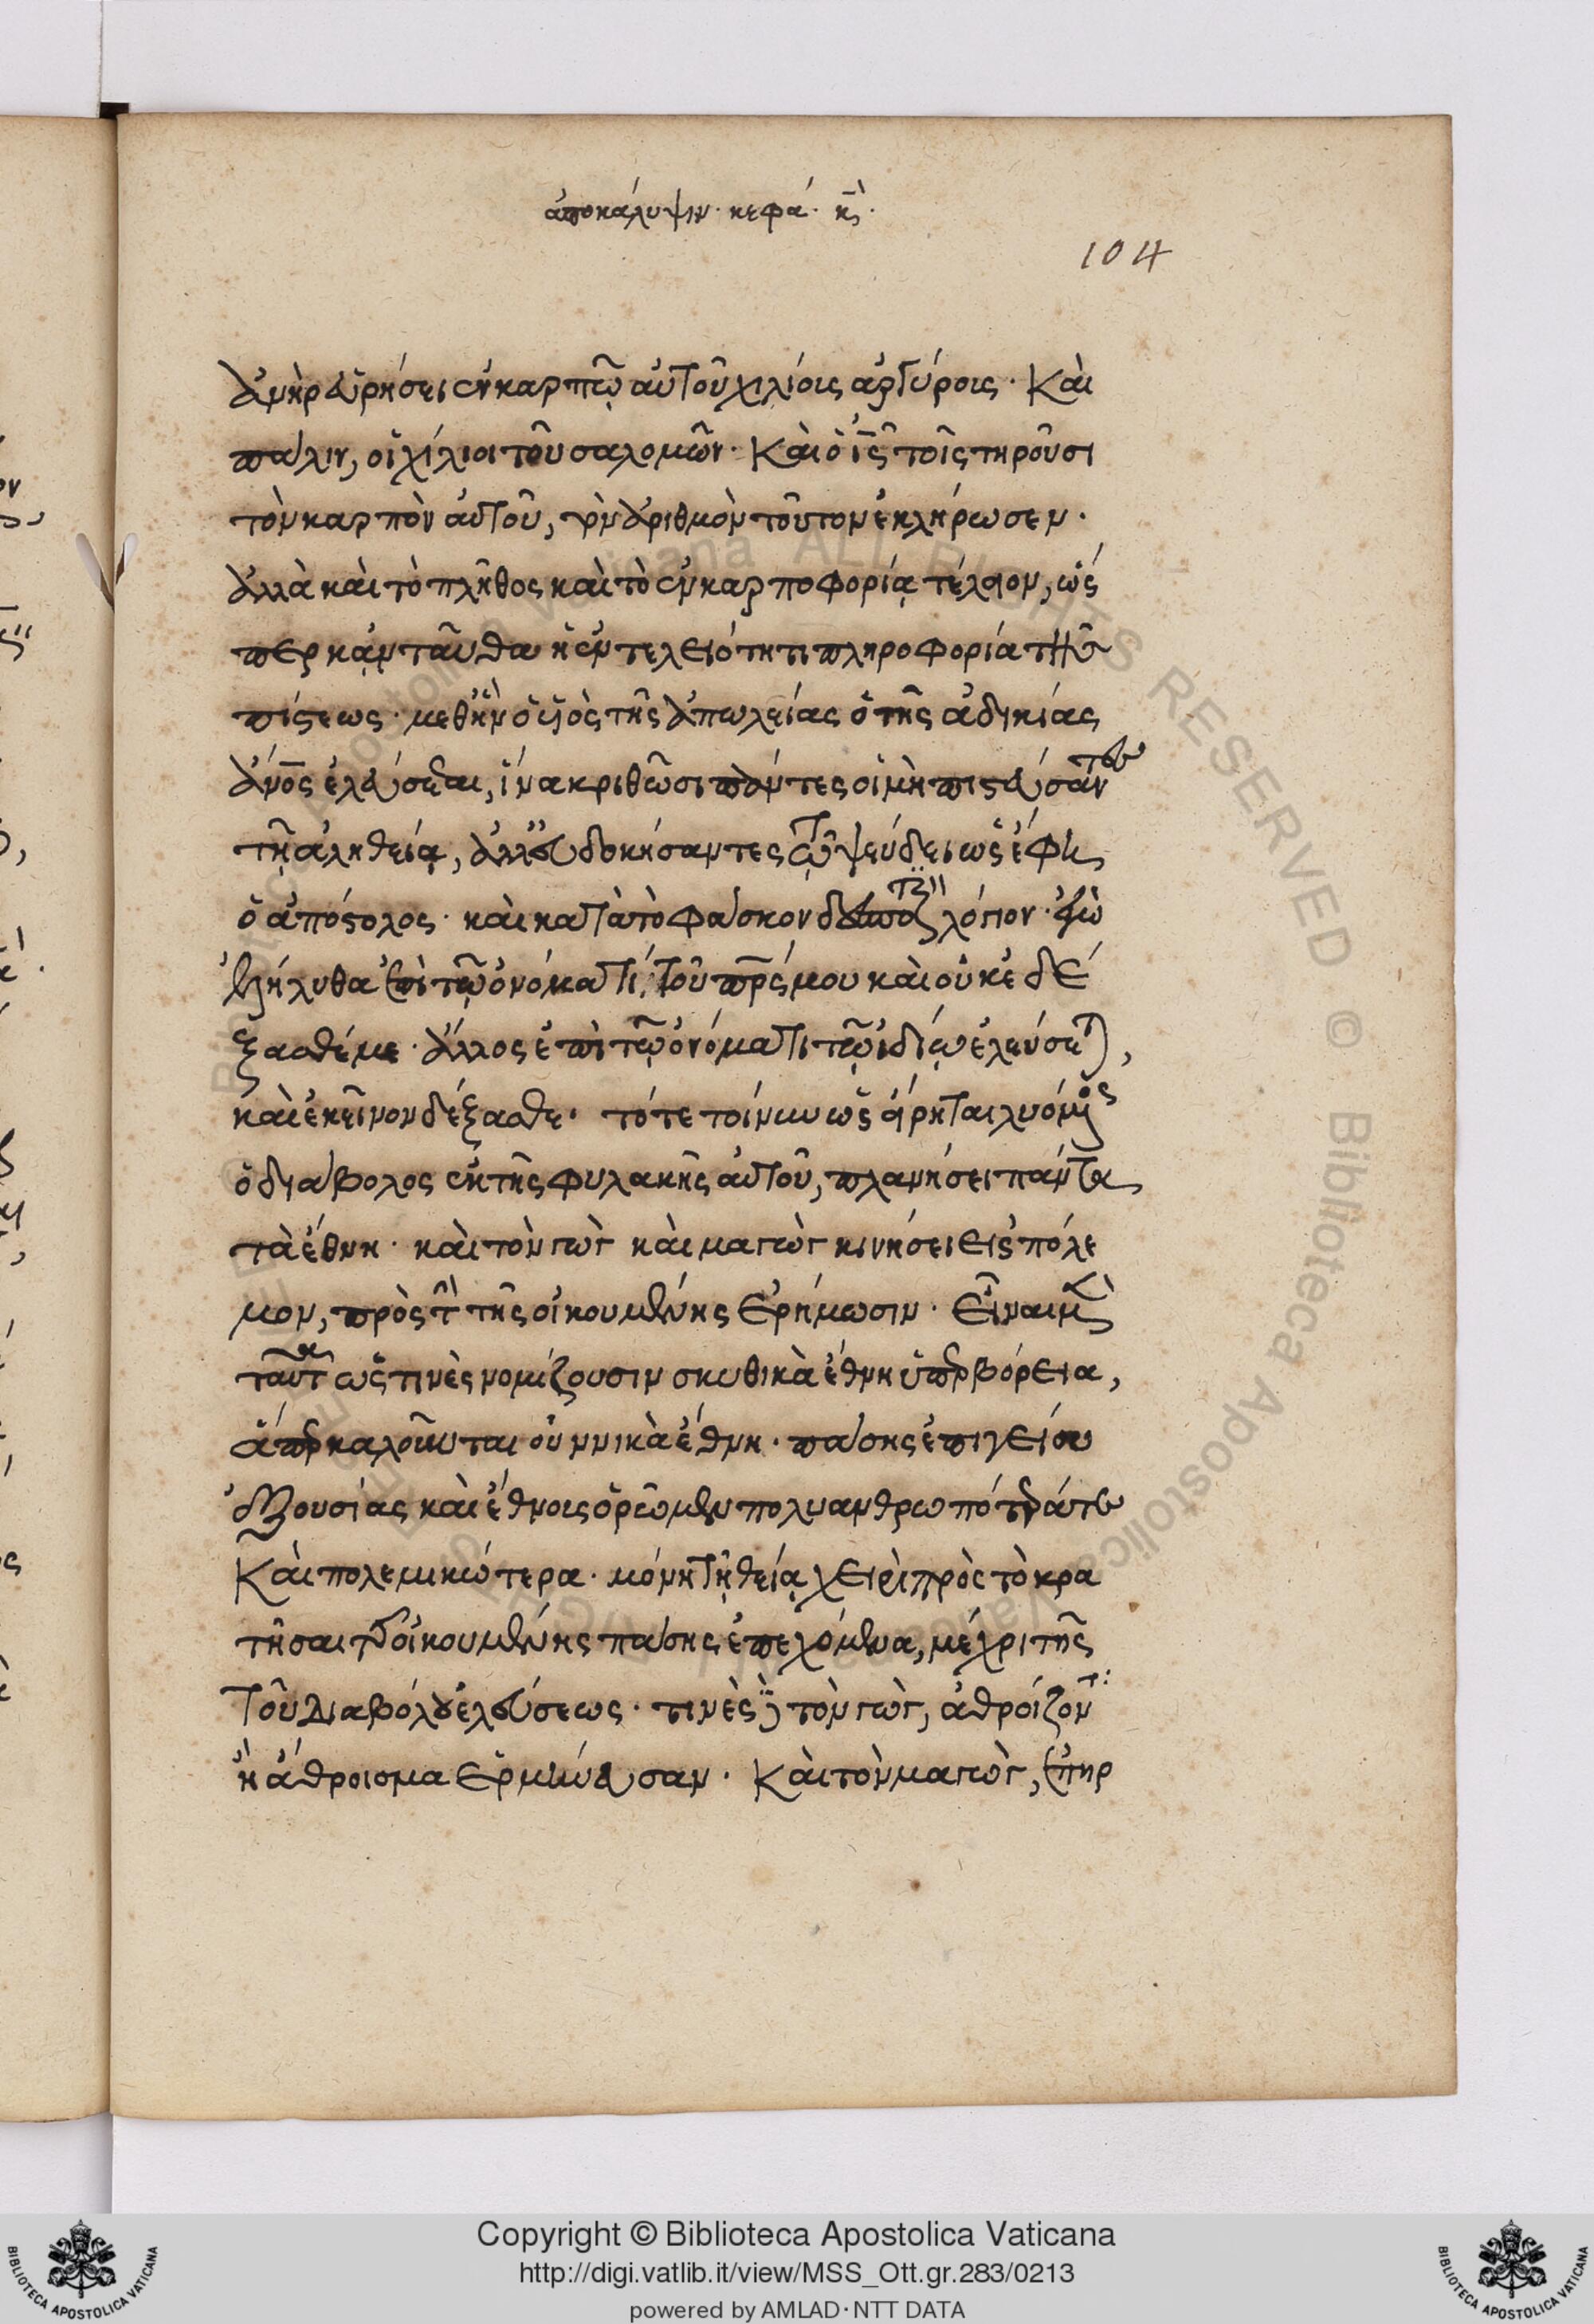 ἀποκάλυψιν· κεφά· κϛ̄·
104
ἀνὴρ εὑρήσει ἐν καρπῷ αὐτοῦ χιλίοις ἀργύροις· Καὶ
πάλιν, οἱ χίλιοι τοῦ σαλομῶν· Καὶ ὁ ις̄ τοῖς τηροῦσι
τὸν καρπὸν αὐτοῦ, τὸν ἀριθμὸν τοῦτον ἐκλήρωσεν·
ἀλλὰ καὶ τὸ πλῆθος καὶ τὸ ἐν καρποφορίᾳ τέλειον, ὥσ
περ κἀνταῦθα ἡ ἐν τελειότητι πληροφορία τῆς
πίστεως· μεθ' ἣν ὁ υἱὸς τῆς ἀπωλείας ὁ τῆς ἀδικίας
ἄνος ἐλεύσεται, ἵνα κριθῶσι πάντες οἱ μὴ πιστεύσαντες
τῇ ἀληθείᾳ, ἀλλ' εὐδοκήσαντες τῷ ψεύδει ὥς ἔφη
ὁ ἀπόστολος· καὶ κατὰ τὸ φάσκον λόγιον· ἐγὼ
ἐλήλυθα ἐπὶ τῷ ὀνόματι τοῦ πρς μου καὶ οὐκ ἐδέ
ξασθέ με· ἄλλος ἐπὶ τῷ ὀνόματι τῷ ἰδίῳ ἐλεύσεται,
καὶ ἐκεῖνον δέξασθε· τότε τοίνυν ὡς εἴρηται λυόμενος
ὁ διάβολος ἐκ τῆς φυλακῆς αὐτοῦ, πλανήσει πάντα
τὰ ἔθνη· καὶ τὸν γὼγ καὶ μαγὼγ κινήσει εἰς πόλε
μον, πρὸς τὴν τῆς οἰκουμένης ἐρήμωσιν· Εἶναι μὲν
ταῦτα ὥς τινὲς νομίζουσιν σκυθικὰ ἔθνη ὑπερβόρεια,
ἅπερ καλοῦνται οὐννικὰ ἔθνη· πάσης ἐπιγείου
ἐξουσίας καὶ ἔθνοις ὁρῶμεν πολυανθρωπότερά τε
Καὶ πολεμικώτερα· μόνῃ τῇ θείᾳ χειρὶ πρὸς τὸ κρα
τῆσαι τῆς οἰκουμένης πάσης ἐπεχόμενα, μέχρι τῆς
τοῦ Διαβόλου ἐλεύσεως· τινὲς δὲ τὸν γὼγ, ἀθροίζοντα
ἢ ἄθροισμα ἑρμήνευσαν· Καὶ τὸν μαγὼγ, ἐπηρ
Copyright © Biblioteca Apostolica Vaticana
http://digi.vatlib.it/view/MSS_Ott.gr.283/0213
powered by AMLAD·NTT DATA